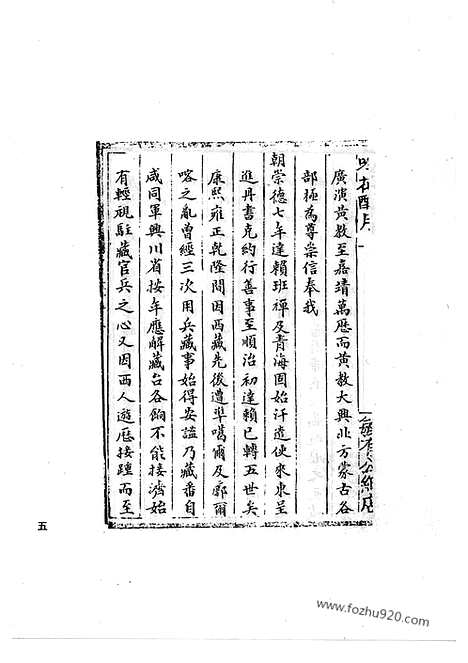 廣演黃教至嘉靖萬歷而黃教大興北方蒙古各
部極為尊崇信奉我
朝崇德七年達賴班禪及青海固始汗遣使來東呈
進丹書克約行善事至順治初達賴已轉五世矣
康熙雍正乾隆間因西藏先後遭準噶爾及廓爾
喀之亂曾經三次用兵藏事始得安謐乃藏番自
咸同軍興川省按年應解藏台各餉不能接濟始
有輕視駐藏官兵之心又因西人遊歷接踵而至
五
www.fozhu920.com